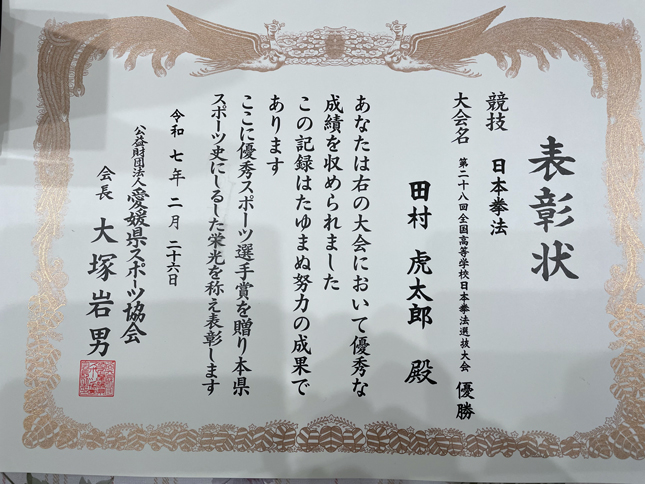 表彰状
競技 日本拳法
大会名 第二十八回全国高等学校日本拳法選抜大会 優勝
田村 虎太郎 殿
あなたは右の大会において優秀な
成績を収められました
この記録はたゆまぬ努力の成果で
あります
ここに優秀スポーツ選手賞を贈り本県
スポーツ史にしるした栄光を称え表彰します
令和 七年 二月 二十六日
公益財団法人 愛媛県スポーツ協会
会長 大塚 岩男